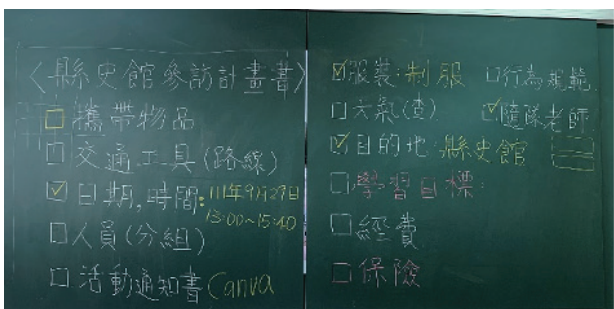 〈縣史館參訪計畫書〉
□攜帶物品
□交通工具(路線)
☑日期,時間:111年9月27日
13:00~15:40
□人員(分組)
□活動通知書Canva
☑服裝:制服 □行為規範
□天氣(查) ☑隨隊老師
☑目的地:縣史館
□學習目標:
□經費
□保險